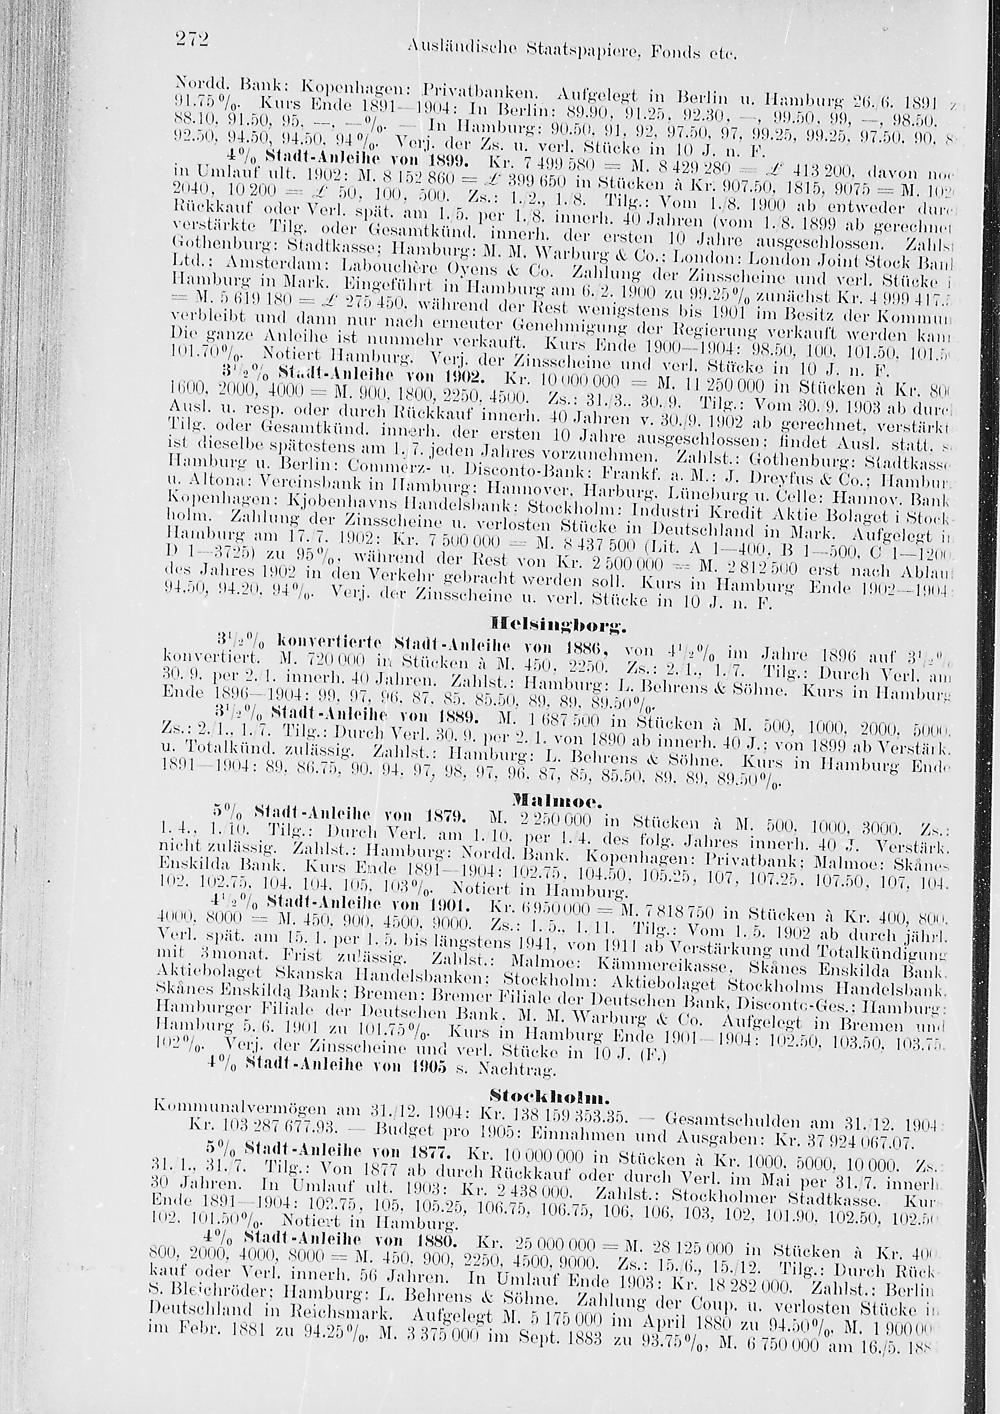 272
Ausländische Staatspapiere, Fonds etc.
Nordd. Bank: Kopenhagen: Privatbanken. Aufgelegt in Berlin u. Hamburg 26./6. 1891 z
91.75%. Kurs Ende 1891—1904: In Berlin: 89.90, 91.25, 92.30, —, 99.50, 99, —, 98.50,
88.10, 91.50, 95, —, —%. — In Hamburg: 90.50, 91, 92, 97.50, 97, 99.25, 99.25, 97.50, 90, 8
92.50, 94.50, 94.50, 94%. Verj. der Zs. u. verl. Stücke in 10 J. n. F.
4% Stadt-Anleihe von 1899. Kr. 7 499 580 = M. 8 429 280 = £ 413 200, davon noc
in Umlauf ult. 1902: M. 8 152 860 = £ 399 650 in Stücken à Kr. 907.50, 1815, 9075 = M. 102
2040, 10 200 = £ 50, 100, 500. Zs.: 1./2., 1./8. Tilg.: Vom 1./8. 1900 ab entweder durc
Rückkauf oder Verl. spät. am 1./5. per 1./8. innerh. 40 Jahren (vom 1./8. 1899 ab gerechnet
verstärkte Tilg. oder Gesamtkünd. innerh. der ersten 10 Jahre ausgeschlossen. Zahlst
Gothenburg: Stadtkasse; Hamburg: M. M. Warburg & Co.; London: London Joint Stock Banl
Ltd.; Amsterdam: Labouchère Oyens & Co. Zahlung der Zinsscheine und verl. Stücke i
Hamburg in Mark. Eingeführt in Hamburg am 6./2. 1900 zu 99.25% zunächst Kr. 4 999 417.5
= M. 5 619 180 = £ 275 450, während der Rest wenigstens bis 1901 im Besitz der Kommun
verbleibt und dann nur nach erneuter Genehmigung der Regierung verkauft werden kann
Die ganze Anleihe ist nunmehr verkauft. Kurs Ende 1900—1904: 98.50, 100, 101.50, 101.50
101.70%. Notiert Hamburg. Verj. der Zinsscheine und verl. Stücke in 10 J. n. F.
3½% Stadt-Anleihe von 1902. Kr. 10 000 000 = M. 11 250 000 in Stücken à Kr. 800
1600, 2000, 4000 = M. 900, 1800, 2250, 4500. Zs.: 31./3., 30./9. Tilg.: Vom 30./9. 1903 ab durcl
Ausl. u. resp. oder durch Rückkauf innerh. 40 Jahren v. 30./9. 1902 ab gerechnet, verstärkt
Tilg. oder Gesamtkünd. innerh. der ersten 10 Jahre ausgeschlossen; findet Ausl. statt, s
ist dieselbe spätestens am 1./7. jeden Jahres vorzunehmen. Zahlst.: Gothenburg: Stadtkasse
Hamburg u. Berlin: Commerz- u. Disconto-Bank; Frankf. a. M.: J. Dreyfus & Co.; Hambur
u. Altona: Vereinsbank in Hamburg; Hannover, Harburg, Lüneburg u. Celle: Hannov. Bank
Kopenhagen: Kjobenhavns Handelsbank; Stockholm: Industri Kredit Aktie Bolaget i Stock
holm. Zahlung der Zinsscheine u. verlosten Stücke in Deutschland in Mark. Aufgelegt in
Hamburg am 17./7. 1902: Kr. 7 500 000 = M. 8 437 500 (Lit. A 1—400, B 1—500, C 1—1200
D 1—3725) zu 95%, während der Rest von Kr. 2 500 000 = M. 2 812 500 erst nach Ablauf
des Jahres 1902 in den Verkehr gebracht werden soll. Kurs in Hamburg Ende 1902—1904:
94.50, 94.20, 94%. Verj. der Zinsscheine u. verl. Stücke in 10 J. n. F.
Helsingborg.
3½% konvertierte Stadt-Anleihe von 1886, von 4½% im Jahre 1896 auf 3½%
konvertiert. M. 720 000 in Stücken à M. 450, 2250. Zs.: 2./1., 1./7. Tilg.: Durch Verl. am
30./9. per 2./1. innerh. 40 Jahren. Zahlst.: Hamburg: L. Behrens & Söhne. Kurs in Hamburg
Ende 1896—1904: 99, 97, 96, 87, 85, 85.50, 89, 89, 89.50%.
3½% Stadt-Anleihe von 1889. M. 1 687 500 in Stücken à M. 500, 1000, 2000, 5000.
Zs.: 2./1., 1./7. Tilg.: Durch Verl. 30./9. per 2./1. von 1890 ab innerh. 40 J.; von 1899 ab Verstärk.
u. Totalkünd. zulässig. Zahlst.: Hamburg: L. Behrens & Söhne. Kurs in Hamburg Ende
1891—1904: 89, 86.75, 90, 94, 97, 98, 97, 96, 87, 85, 85.50, 89, 89, 89.50%.
Malmoe.
5% Stadt-Anleihe von 1879. M. 2 250 000 in Stücken à M. 500, 1000, 3000. Zs.:
1./4., 1./10. Tilg.: Durch Verl. am 1./10. per 1./4. des folg. Jahres innerh. 40 J. Verstärk.
nicht zulässig. Zahlst.: Hamburg: Nordd. Bank. Kopenhagen: Privatbank; Malmoe: Skånes
Enskilda Bank. Kurs Ende 1891—1904: 102.75, 104.50, 105.25, 107, 107.25, 107.50, 107, 104,
102, 102.75, 104, 104, 105, 103%. Notiert in Hamburg.
4½% Stadt-Anleihe von 1901. Kr. 6 950 000 = M. 7 818 750 in Stücken à Kr. 400, 800,
4000, 8000 = M. 450, 900, 4500, 9000. Zs.: 1./5., 1./11. Tilg.: Vom 1./5. 1902 ab durch jährl.
Verl. spät. am 15./1. per 1./5. bis längstens 1941, von 1911 ab Verstärkung und Totalkündigung
mit 3monat. Frist zulässig. Zahlst.: Malmoe: Kämmereikasse, Skånes Enskilda Bank,
Aktiebolaget Skanska Handelsbanken; Stockholm: Aktiebolaget Stockholms Handelsbank,
Skånes Enskilda Bank; Bremen: Bremer Filiale der Deutschen Bank, Disconto-Ges.; Hamburg:
Hamburger Filiale der Deutschen Bank, M. M. Warburg & Co. Aufgelegt in Bremen und
Hamburg 5./6. 1901 zu 101.75%. Kurs in Hamburg Ende 1901—1904: 102.50, 103.50, 103.75,
102%. Verj. der Zinsscheine und verl. Stücke in 10 J. (F.)
4% Stadt-Anleihe von 1905 s. Nachtrag.
Stockholm.
Kommunalvermögen am 31./12. 1904: Kr. 138 159 353.35. — Gesamtschulden am 31./12. 1904:
Kr. 103 287 677.93. — Budget pro 1905: Einnahmen und Ausgaben: Kr. 37 924 067.07.
5% Stadt-Anleihe von 1877. Kr. 10 000 000 in Stücken à Kr. 1000, 5000, 10 000. Zs.:
31./1., 31./7. Tilg.: Von 1877 ab durch Rückkauf oder durch Verl. im Mai per 31./7. innerh
30 Jahren. In Umlauf ult. 1903: Kr. 2 438 000. Zahlst.: Stockholmer Stadtkasse. Kur
Ende 1891—1904: 102.75, 105, 105.25, 106.75, 106.75, 106, 106, 103, 102, 101.90, 102.50, 102.50
102, 101.50%. Notiert in Hamburg.
4% Stadt-Anleihe von 1880. Kr. 25 000 000 = M. 28 125 000 in Stücken à Kr. 400
800, 2000, 4000, 8000 = M. 450, 900, 2250, 4500, 9000. Zs.: 15./6., 15./12. Tilg.: Durch Rück
kauf oder Verl. innerh. 56 Jahren. In Umlauf Ende 1903: Kr. 18 282 000. Zahlst.: Berlin
S. Bleichröder; Hamburg: L. Behrens & Söhne. Zahlung der Coup. u. verlosten Stücke in
Deutschland in Reichsmark. Aufgelegt M. 5 175 000 im April 1880 zu 94.50%, M. 1 900 00
im Febr. 1881 zu 94.25%, M. 3 375 000 im Sept. 1883 zu 93.75%, M. 6 750 000 am 16./5. 188